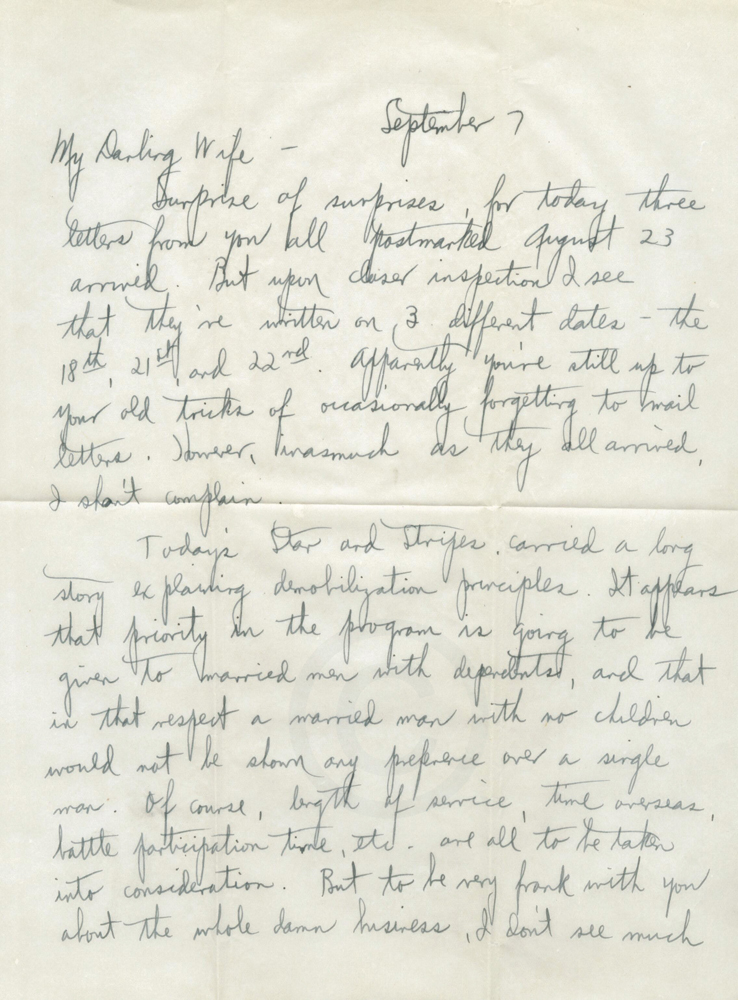 September 7
My Darling Wife -
Surprise of surprises, for today three
letters from you all postmarked August 23
arrived. But upon closer inspection I see
that they've written on 3 different dates - the
18th, 21st, and 22nd. Apparently you're still up to
your old tricks of occasionally forgetting to mail
letters. However, inasmuch as they all arrived,
I shan't complain.
Today's Star and Stripes carried a long
story explaining demobilization principles. It appears
that priority in the program is going to be
given to married men with dependents, and that
in that respect a married man with no children
would not be shown any preference over a single
man. Of course, length of service, time overseas,
battle participation time, etc. are all to be taken
into consideration. But to be very frank with you
about the whole damn business, I don't see much